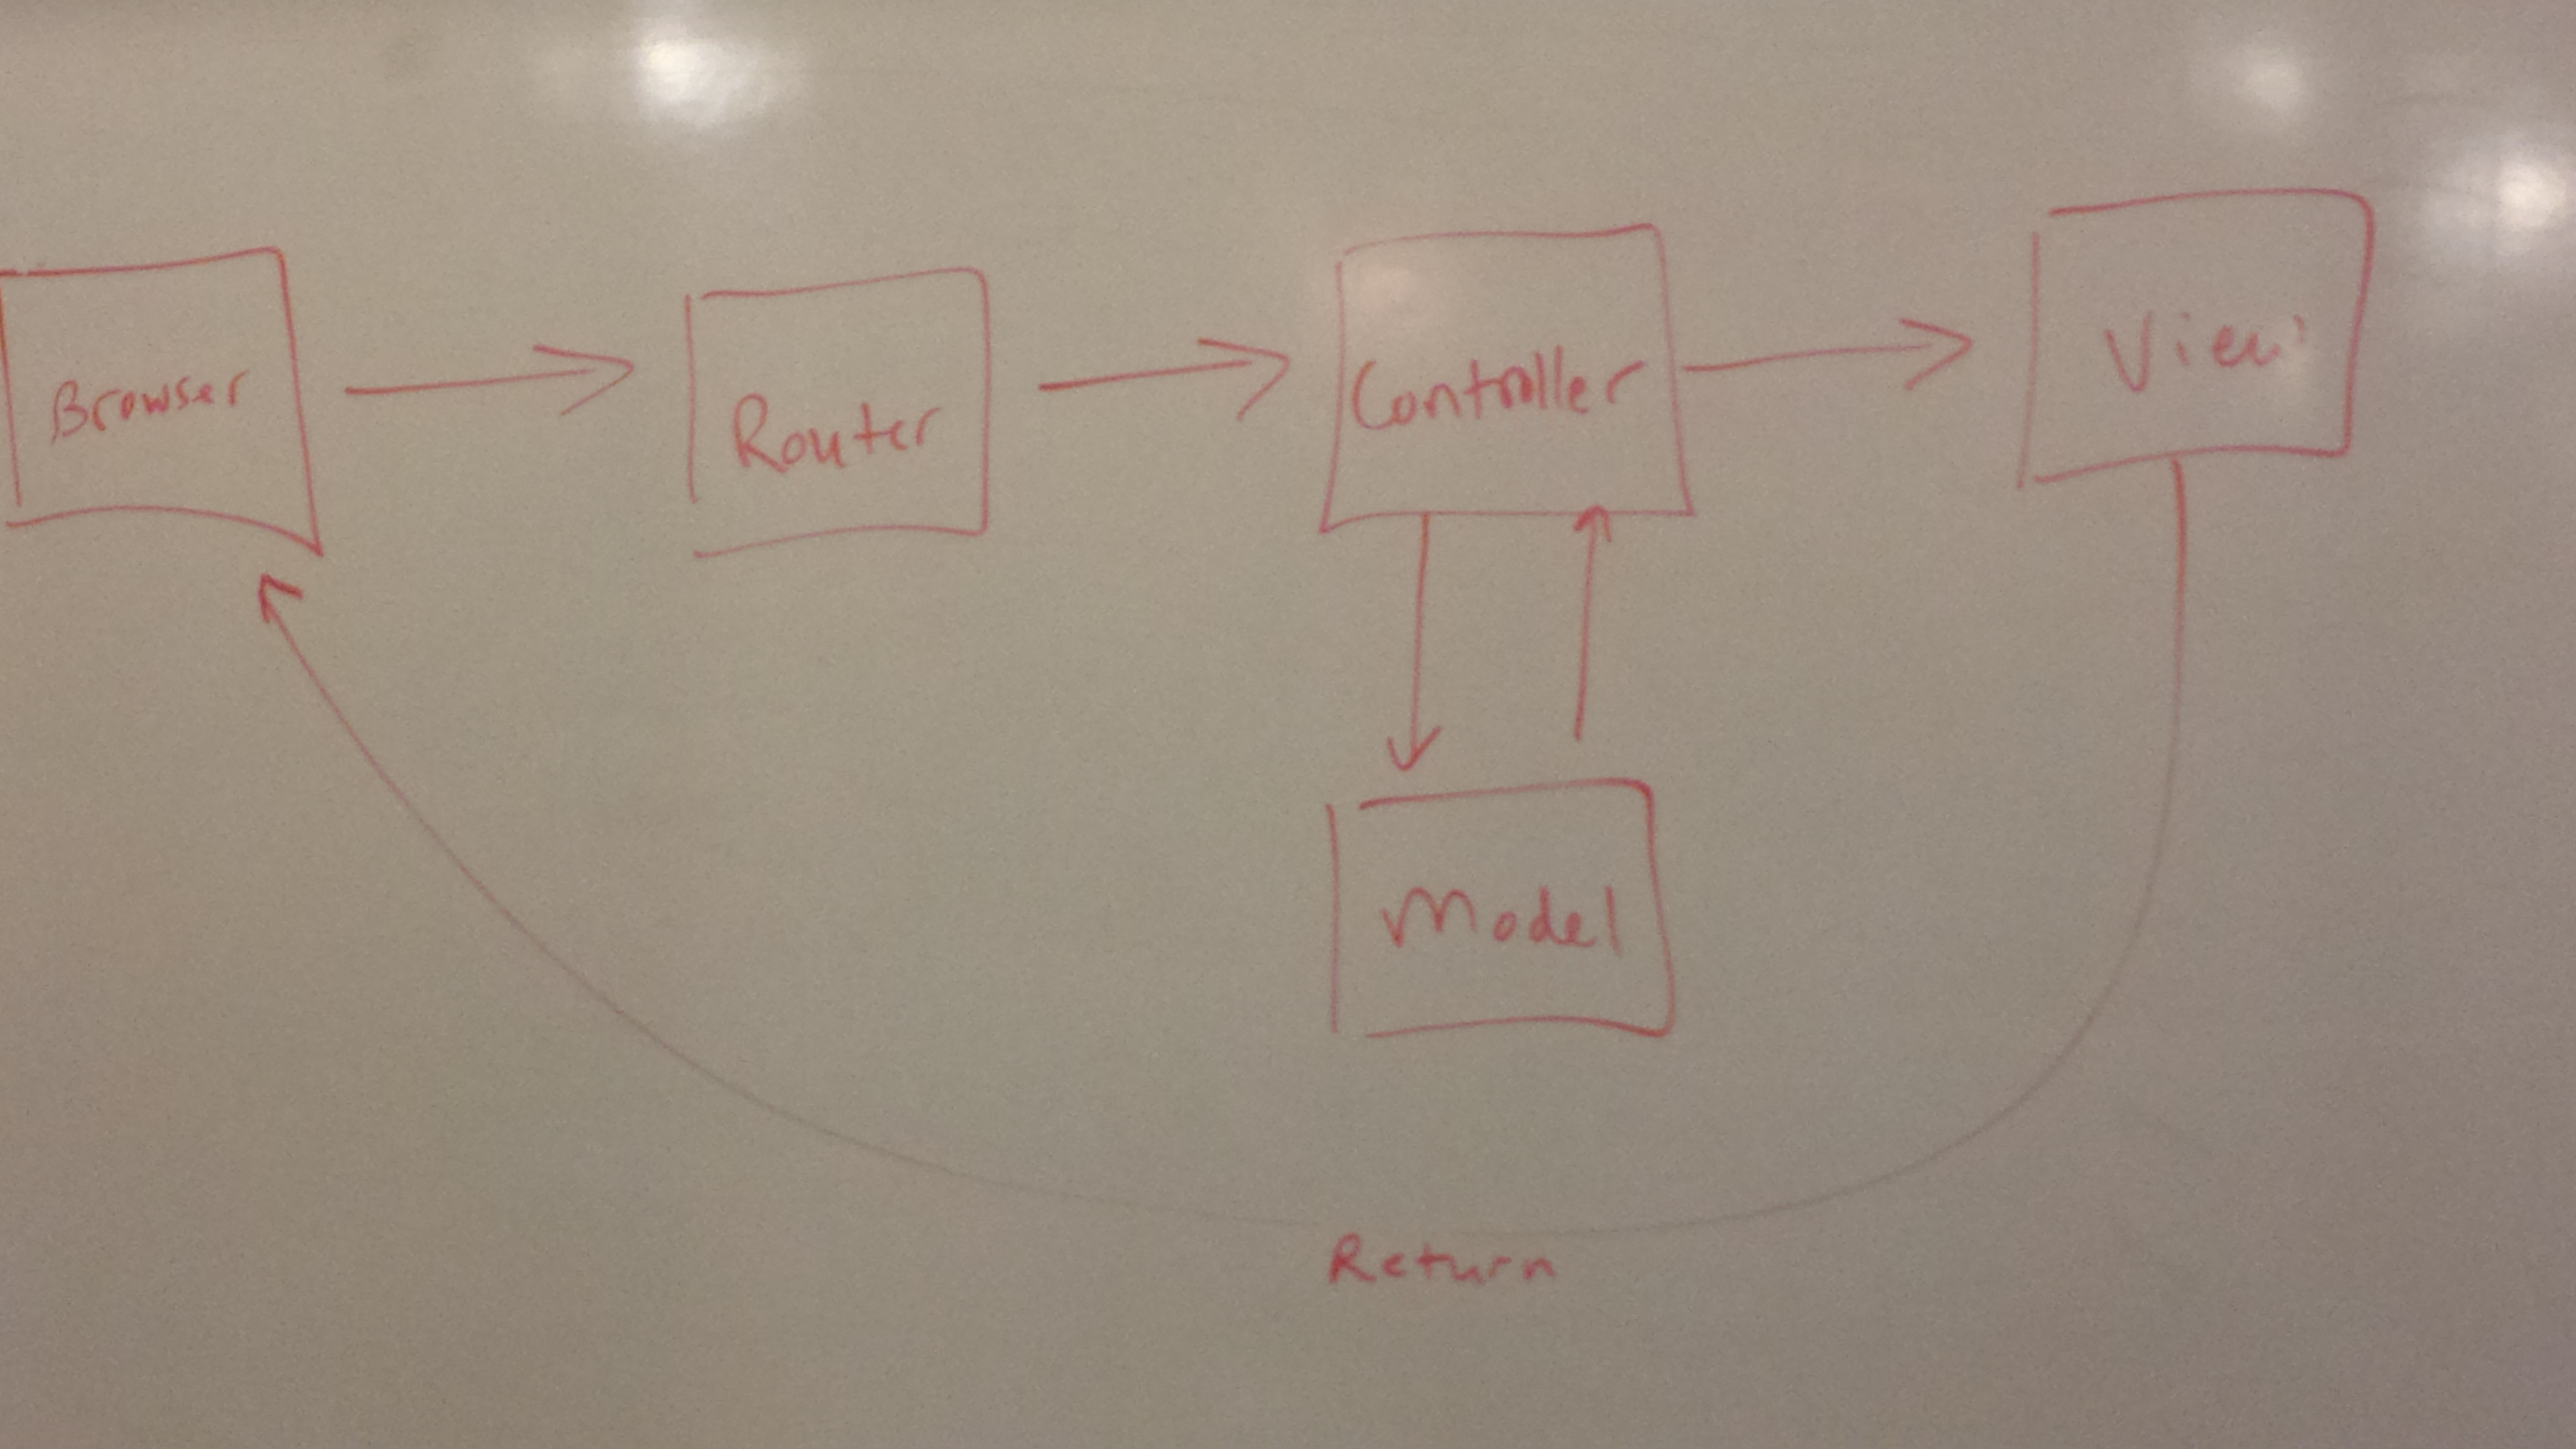 Browser
Router
Controller
View
Model
Return